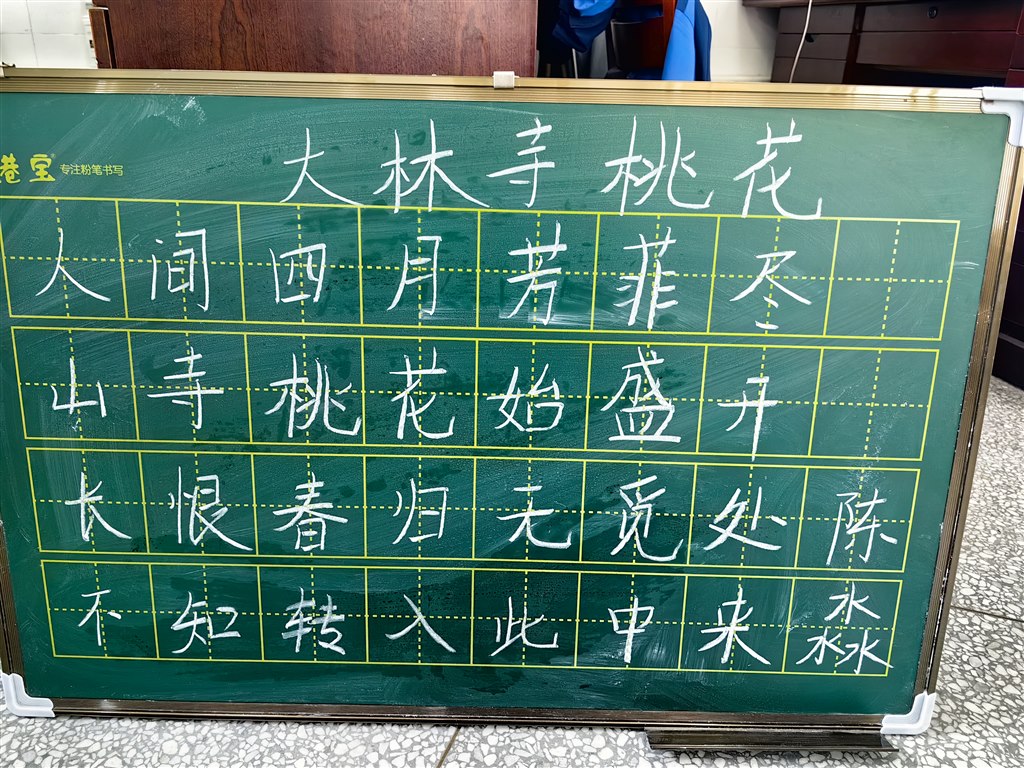 大林寺桃花
巷宝 专注粉笔书写
人间四月芳菲尽
山寺桃花始盛开
长恨春归无觅处 陈
不知转入此中来 淼